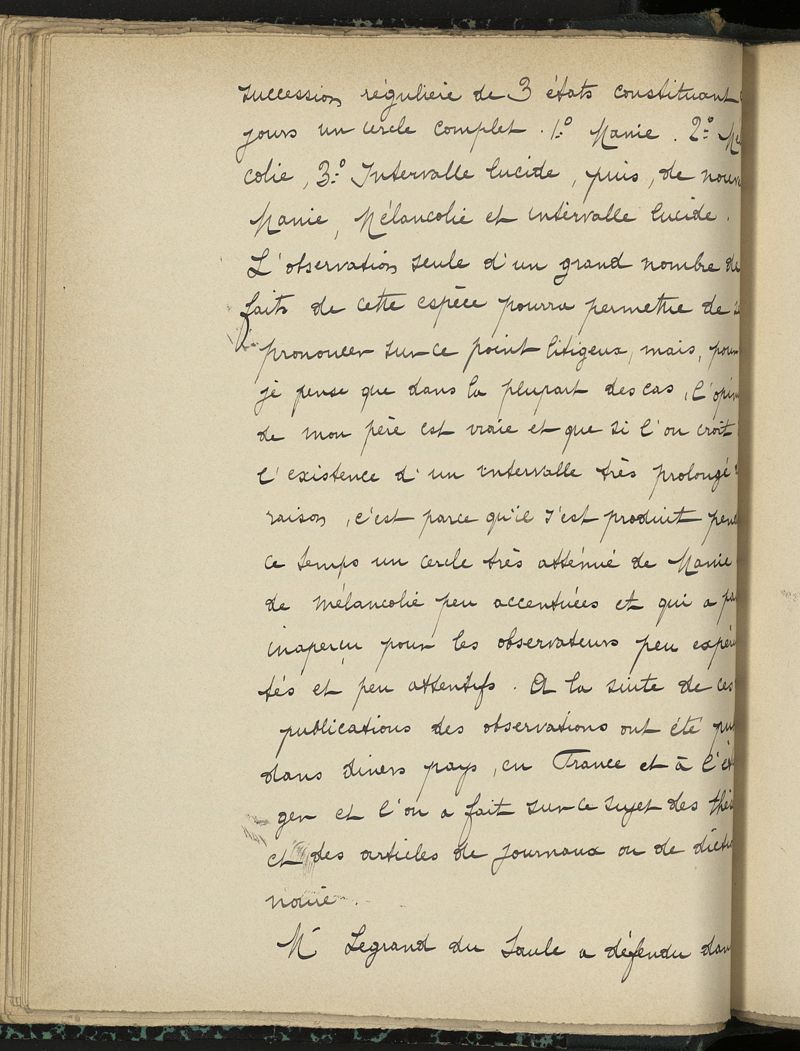 succession régulière de 3 états constituant
jours un cercle complet. 1º Manie. 2º Mé
colie, 3º Intervalle lucide, puis, de nouv
Manie, Mélancolie et intervalle lucide.
L'observation seule d'un grand nombre de
faits de cette espèce pourra permettre de
prononcer sur ce point litigeux, mais, pour
je pense que dans la plupart des cas, l'opin
de mon père est vraie et que si l'on croit
l'existence d'un intervalle très prolongé
raison, c'est parce qu'il s'est produit pen
ce temps un cercle très atténué de Manie
de mélancolie peu accentuées et qui a pa
inaperçu pour les observateurs peu expéri
tés et peu attentifs. A la suite de ces
publications des observations ont été pu
dans divers pays, en France et à l'ét
ger et l'on a fait sur ce sujet des thès
et des articles de journaux ou de dictio
naire.
Mr Legrand du Saule a défendu dan